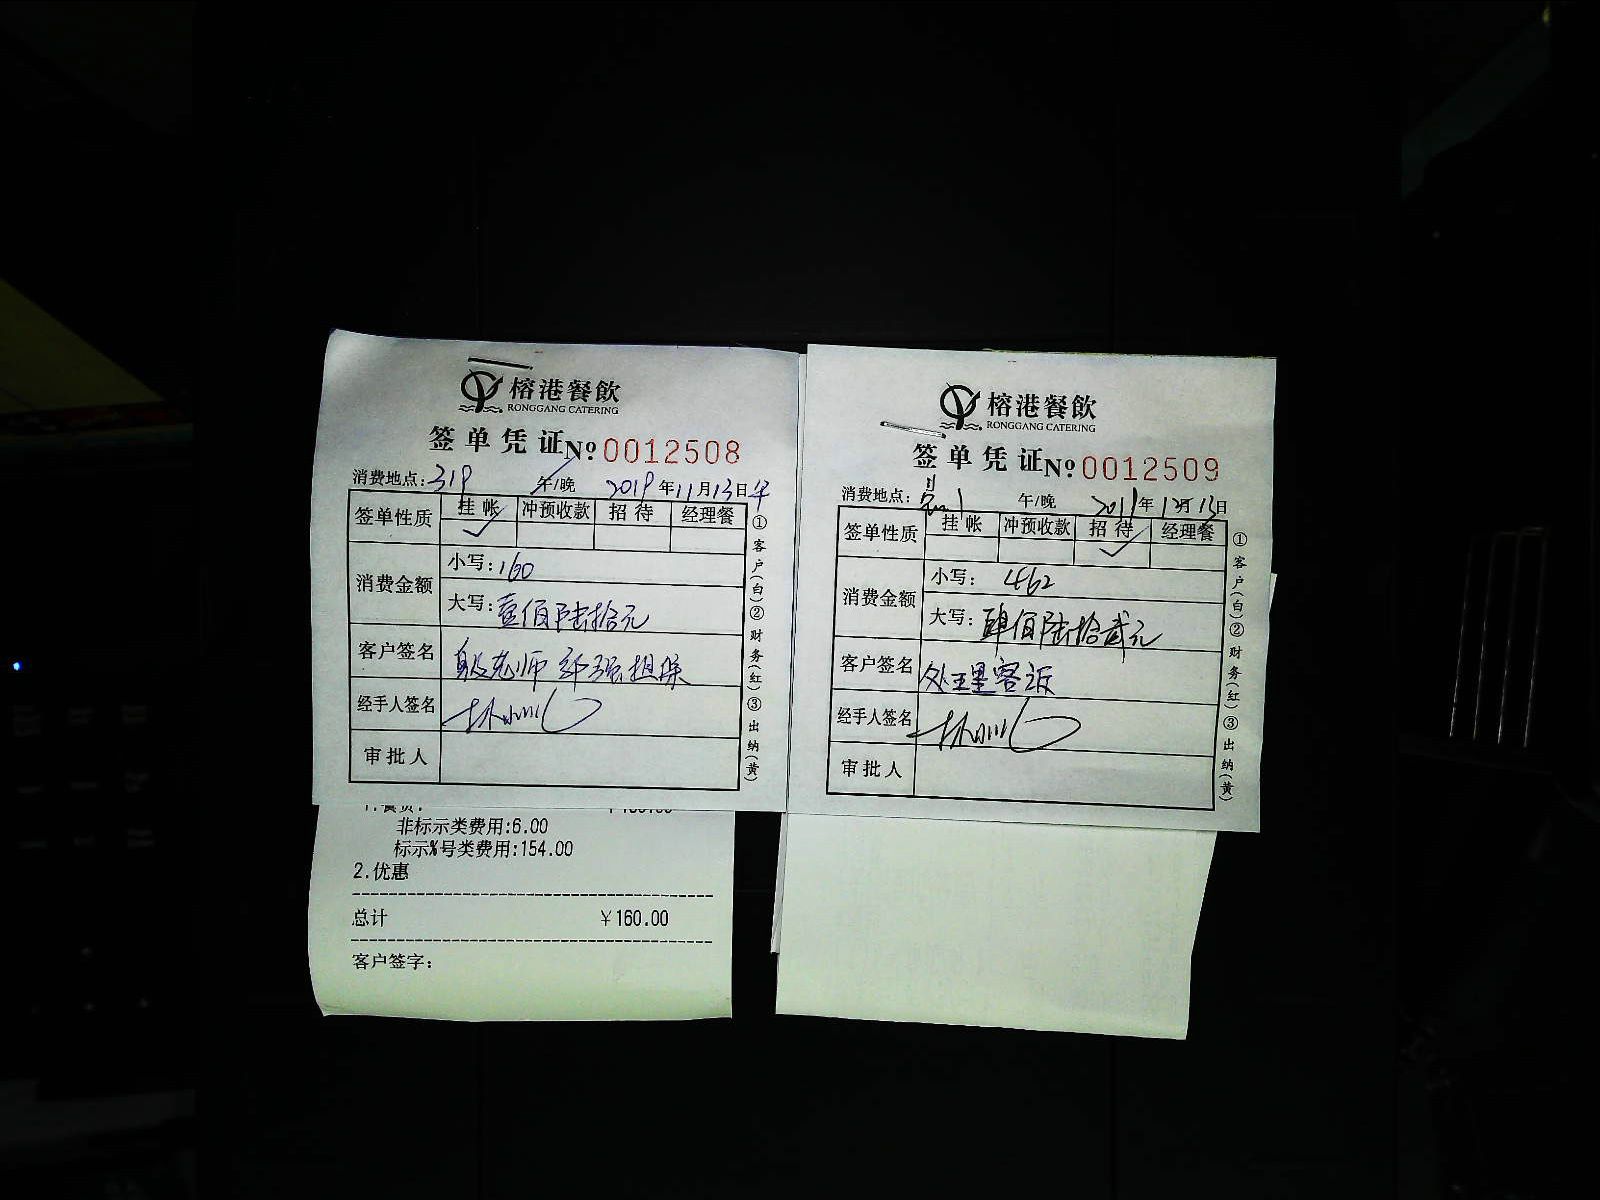 榕港餐飲
RONGGANG CATERING
签单凭证 Nº 0012508
消费地点:319 午/晚 2019年11月13日
签单性质 挂帐 冲预收款 招待 经理餐
✓
消费金额
小写:160
大写:壹佰陆拾元
客户签名 殷老师 强担保
经手人签名
审批人
①客户(白)②财务(红)③出纳(黄)
非标示类费用:6.00
标示%号类费用:154.00
2.优惠
总计 ￥160.00
客户签字:
榕港餐飲
RONGGANG CATERING
签单凭证 Nº 0012509
消费地点: 午/晚 2019年12月13日
签单性质 挂帐 冲预收款 招待 经理餐
✓
消费金额
小写: 462
大写:肆佰陆拾贰元
客户签名 处理客诉
经手人签名
审批人
①客户(白)②财务(红)③出纳(黄)